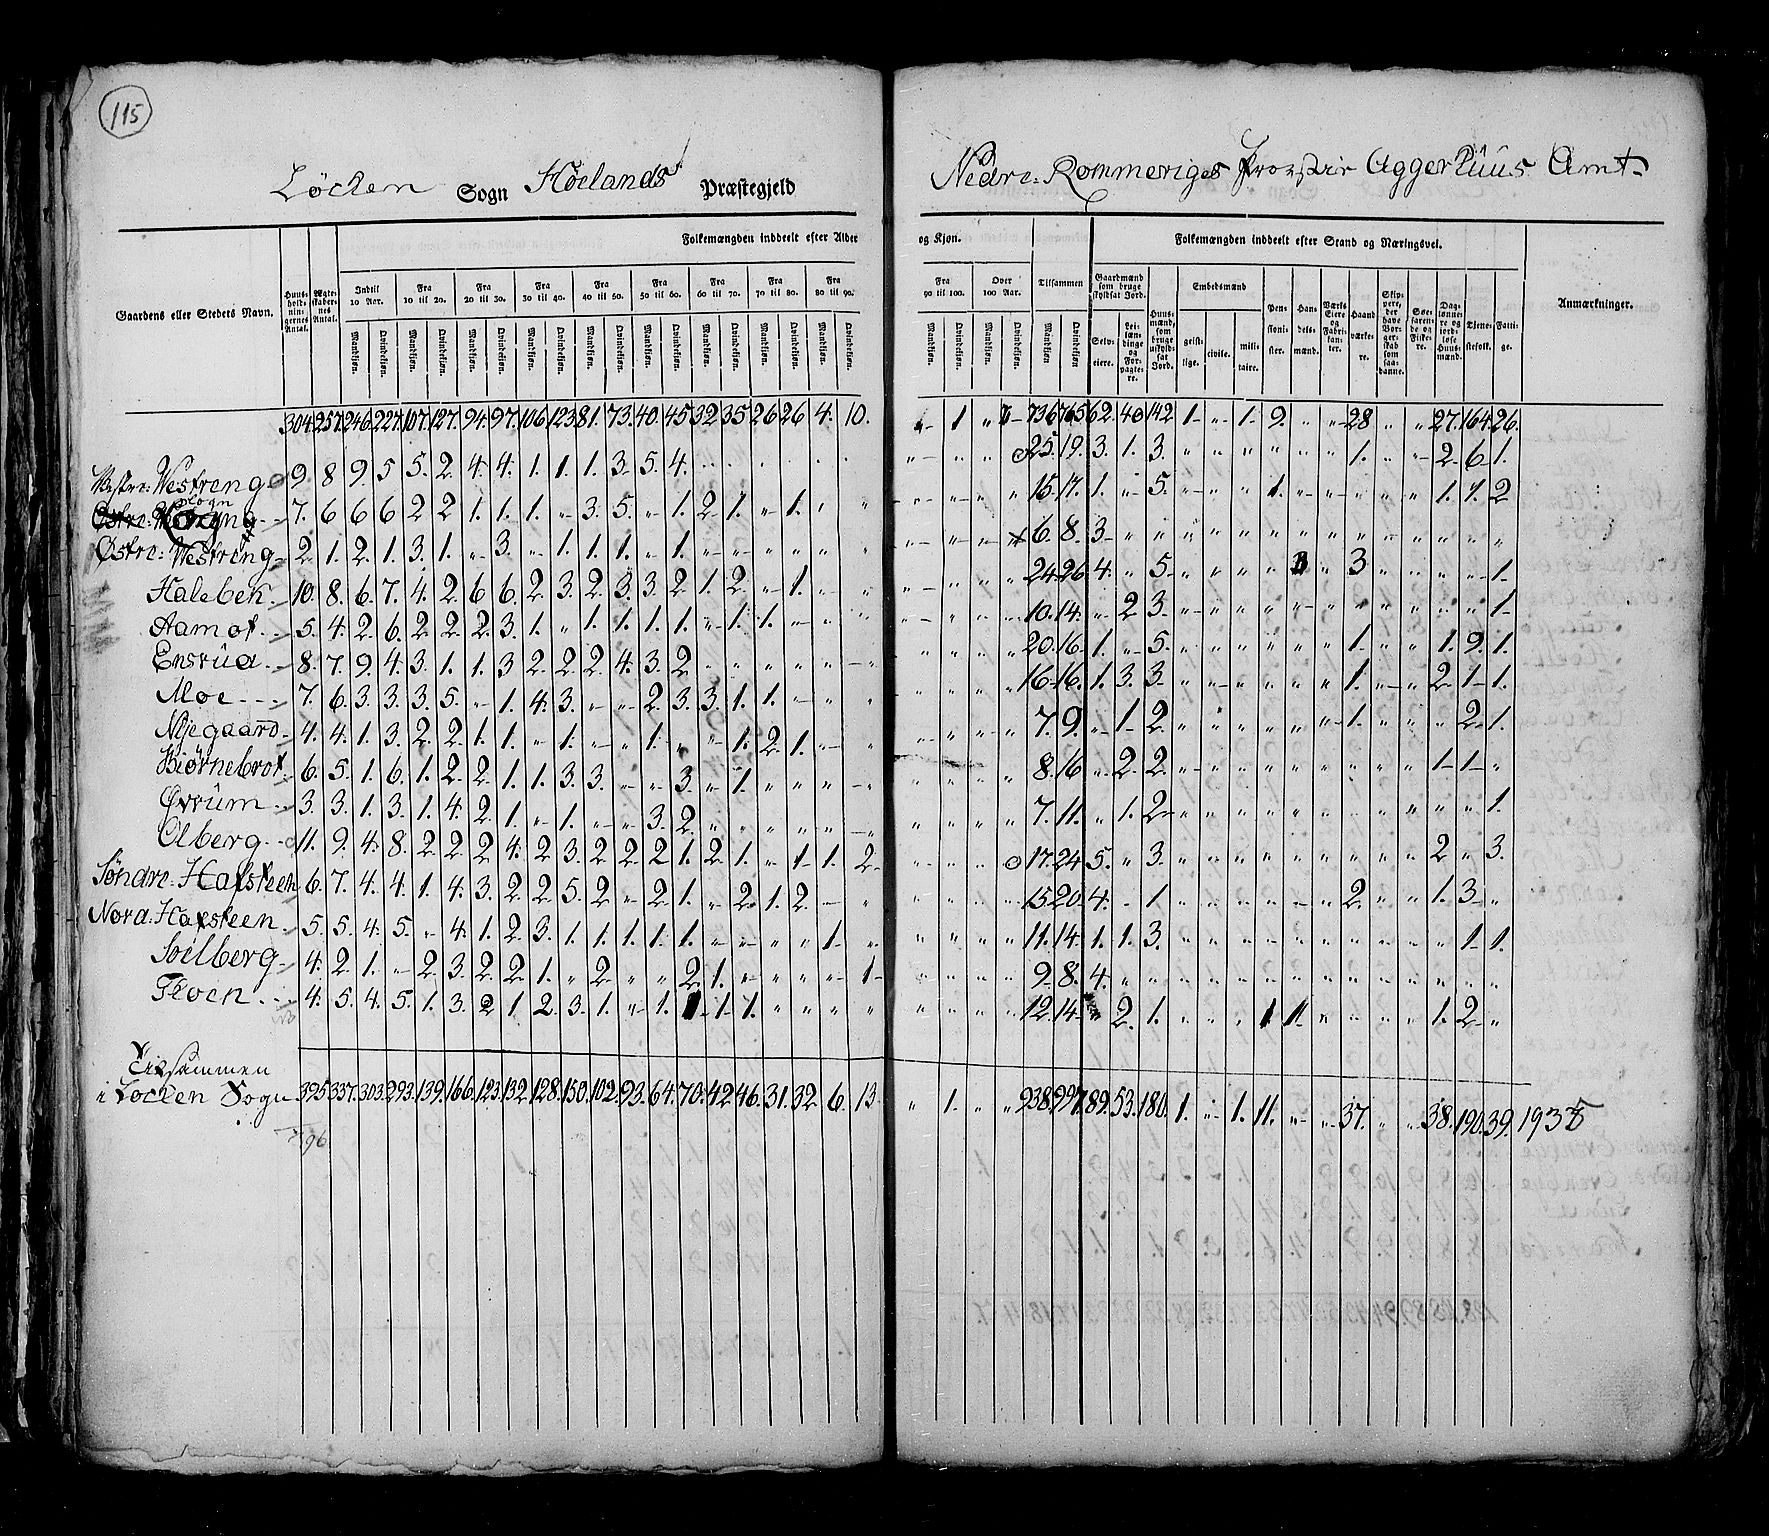 115
Löcken Sogn Höelands Præstegjeld Nedre: Rommeriges Provstie Aggerhuus Amt
Folkemængden inddeelt efter Alder og Kjøn. Folkemængden inddeelt efter Stand og Næringsvei.
Gaardens eller Stedets Navn. Huusholdningernes Antal. Ægteskabernes Antal. Indtil 10 Aar. Fra 10 til 20. Fra 20 til 30. Fra 30 til 40. Fra 40 til 50. Fra 50 til 60. Fra 60 til 70. Fra 70 til 80. Fra 80 til 90. Fra 90 til 100. Over 100 Aar. Tilsammen Gaardmænd som bruge skyldsat Jord. Huusmænd, som bruge uskyldsat Jord. Embedsmænd Pensionister. Handelsmænd. Værks Eiere og Fabrikanter. Haandværkere. Skippere, der have Borgerskab som saadanne. Søefarende og Fiskere. Daglønnere og jordløse Huusmænd. Tjenestefolk. Fattige. Anmærkninger.
Mandkjøn. Qvindekjøn. Mandkjøn. Qvindekjøn. Mandkjøn. Qvindekjøn. Mandkjøn. Qvindekjøn. Mandkjøn. Qvindekjøn. Mandkjøn. Qvindekjøn. Mandkjøn. Qvindekjøn. Mandkjøn. Qvindekjøn. Mandkjøn. Qvindekjøn. Mandkjøn. Qvindekjøn. Mandkjøn. Qvindekjøn. Mandkjøn. Qvindekjøn. Selveiere. Leilændinge og Forpagtere. geistlige. civile. militaire.
304. 257. 246. 227. 107. 127. 94. 97. 106. 123. 81. 73. 40. 45. 32. 35. 26. 26. 4. 10. 1 „ 736 765 62. 40 142 1. „ 1. 9. „ „ 28 „ „ 27. 164. 26.
Vestre: Westreng 9. 8 9. 5 5. 2. 4. 4. 1. 1. 1. 3. 5. 4. 25. 19. 3. 1. 3. „ „ „ „ „ „ 1. „ „ 2. 6. 1.
7. 6 6 6 2 2 1. 1. 1. „ 3. 5. „ 1. 2. 1. „ 1. „ „ „ „ „ „ 15. 17. 1. „ 5. „ „ „ 1. „ „ „ „ „ 1. 1. 2
Østre: Westreng 2. 1. 2. 1. 3. 1. „ 3. „ 1. 1. 1. „ 1. „ „ „ „ „ „ „ „ „ 6. 8. 3. „ „ „ „ „ „ „ „ „ „ „ „ „ „
Haleben 10. 8. 6. 7. 4. 2. 6 6. 2. 3. 2. 3. 3. 2. 1. 2. „ 1. „ „ „ „ „ „ 24. 26. 4. „ 5. „ „ „ „ „ 3 „ „ „ „ 1.
Aamot 5. 4. 2. 6. 2. 2. 2. 3. 1. „ 1. 1. 1. 1. „ 1. 1. „ „ „ „ „ „ „ 10. 14. „ 2. 3. „ „ „ „ „ „ „ „ „ „ „ 1.
Ensrua 8. 7. 9. 4. 3. 1. 1. 3. 2. 2. 2. 4. 3. 2. „ „ „ „ „ „ „ „ „ „ 20. 16. 1. „ 5. „ „ „ „ „ „ 1. „ „ 1. 9. 1.
Moe 7. 6. 3. 3. 3. 5. „ 1. 4. 3. „ „ 2. 3. 3. 1. 1. „ „ „ „ „ „ „ 16. 16. 1. 3. 3. „ „ „ „ „ „ 1. „ „ 2. 1. 1.
Nyegaard 4. 4. 1. 3. 2. 2. 1. 1. „ 1. „ „ 1. „ „ 1. 2. 1. „ „ „ „ „ „ 7. 9. „ 1. 2. „ „ „ „ „ „ 1. „ „ „ 2. 1.
Biörnebrot 6. 5. 1. 6. 1. 2. 2. 1. 1. 3. 3. „ „ 3. „ 1. „ „ „ „ „ „ „ „ 8. 16 „ 2. 2. „ „ „ „ „ „ „ „ „ 1. 1. „
3. 3. 1. 3. 1. 4. 2. 1. „ 1. „ „ 3. 2. „ „ „ „ „ „ „ „ „ „ 7. 11. „ 1. 2. „ „ „ „ „ „ „ „ „ „ „ 1.
Olberg 11. 9. 4. 8. 2. 2. 2. 4. 2. 3. 2. 2. 2. 1. 2. 1. „ 1. 1. 2. „ „ „ 17. 24. 5. „ 3. „ „ „ „ „ „ „ „ „ 2. „ 3.
Söndre: Hafsteen 6. 7. 4. 4. 1. 4. 3. 2. 2. 5. 2. „ 2. 1. „ 2. 1. 2. „ „ „ „ „ „ 15. 20. 4. „ 1 „ „ „ „ „ „ 2. „ „ 1. 3. „
Nora: Hafsteen 5. 5. 4. 5. „ 4. 1. 2. 3. 1. 1. 1. 1. 1. „ „ „ „ 1. „ „ „ „ „ 11. 14. 1. 1. 3. „ „ „ „ „ „ „ „ „ „ 1. 1.
Soelberg 4. 2. 1. „ 2. 3. 2. 2. 1. „ 2. „ „ 2. 1. „ „ „ „ 1. „ „ „ „ 9. 8. 4. „ „ „ „ „ „ „ „ „ „ „ „ „ „
4. 5. 4. 5. 1. 3. 2 1 2. 3. 1. „ 1. 1. 1. 1. „ „ „ „ „ „ „ „ 12. 14. „ 2. 1. „ „ „ 1 1. „ „ „ „ 1. 2. „
Tilsammen
i Löcken Sogn 395. 337. 303. 293. 139. 166. 123. 132. 128. 150. 102. 93. 64. 70. 42. 46. 31. 32. 6. 13. „ 1. „ „ 938. 997. 89. 53. 180. 1. „ 1. 11. „ „ 37. „ „ 38. 190. 39. 1935
396